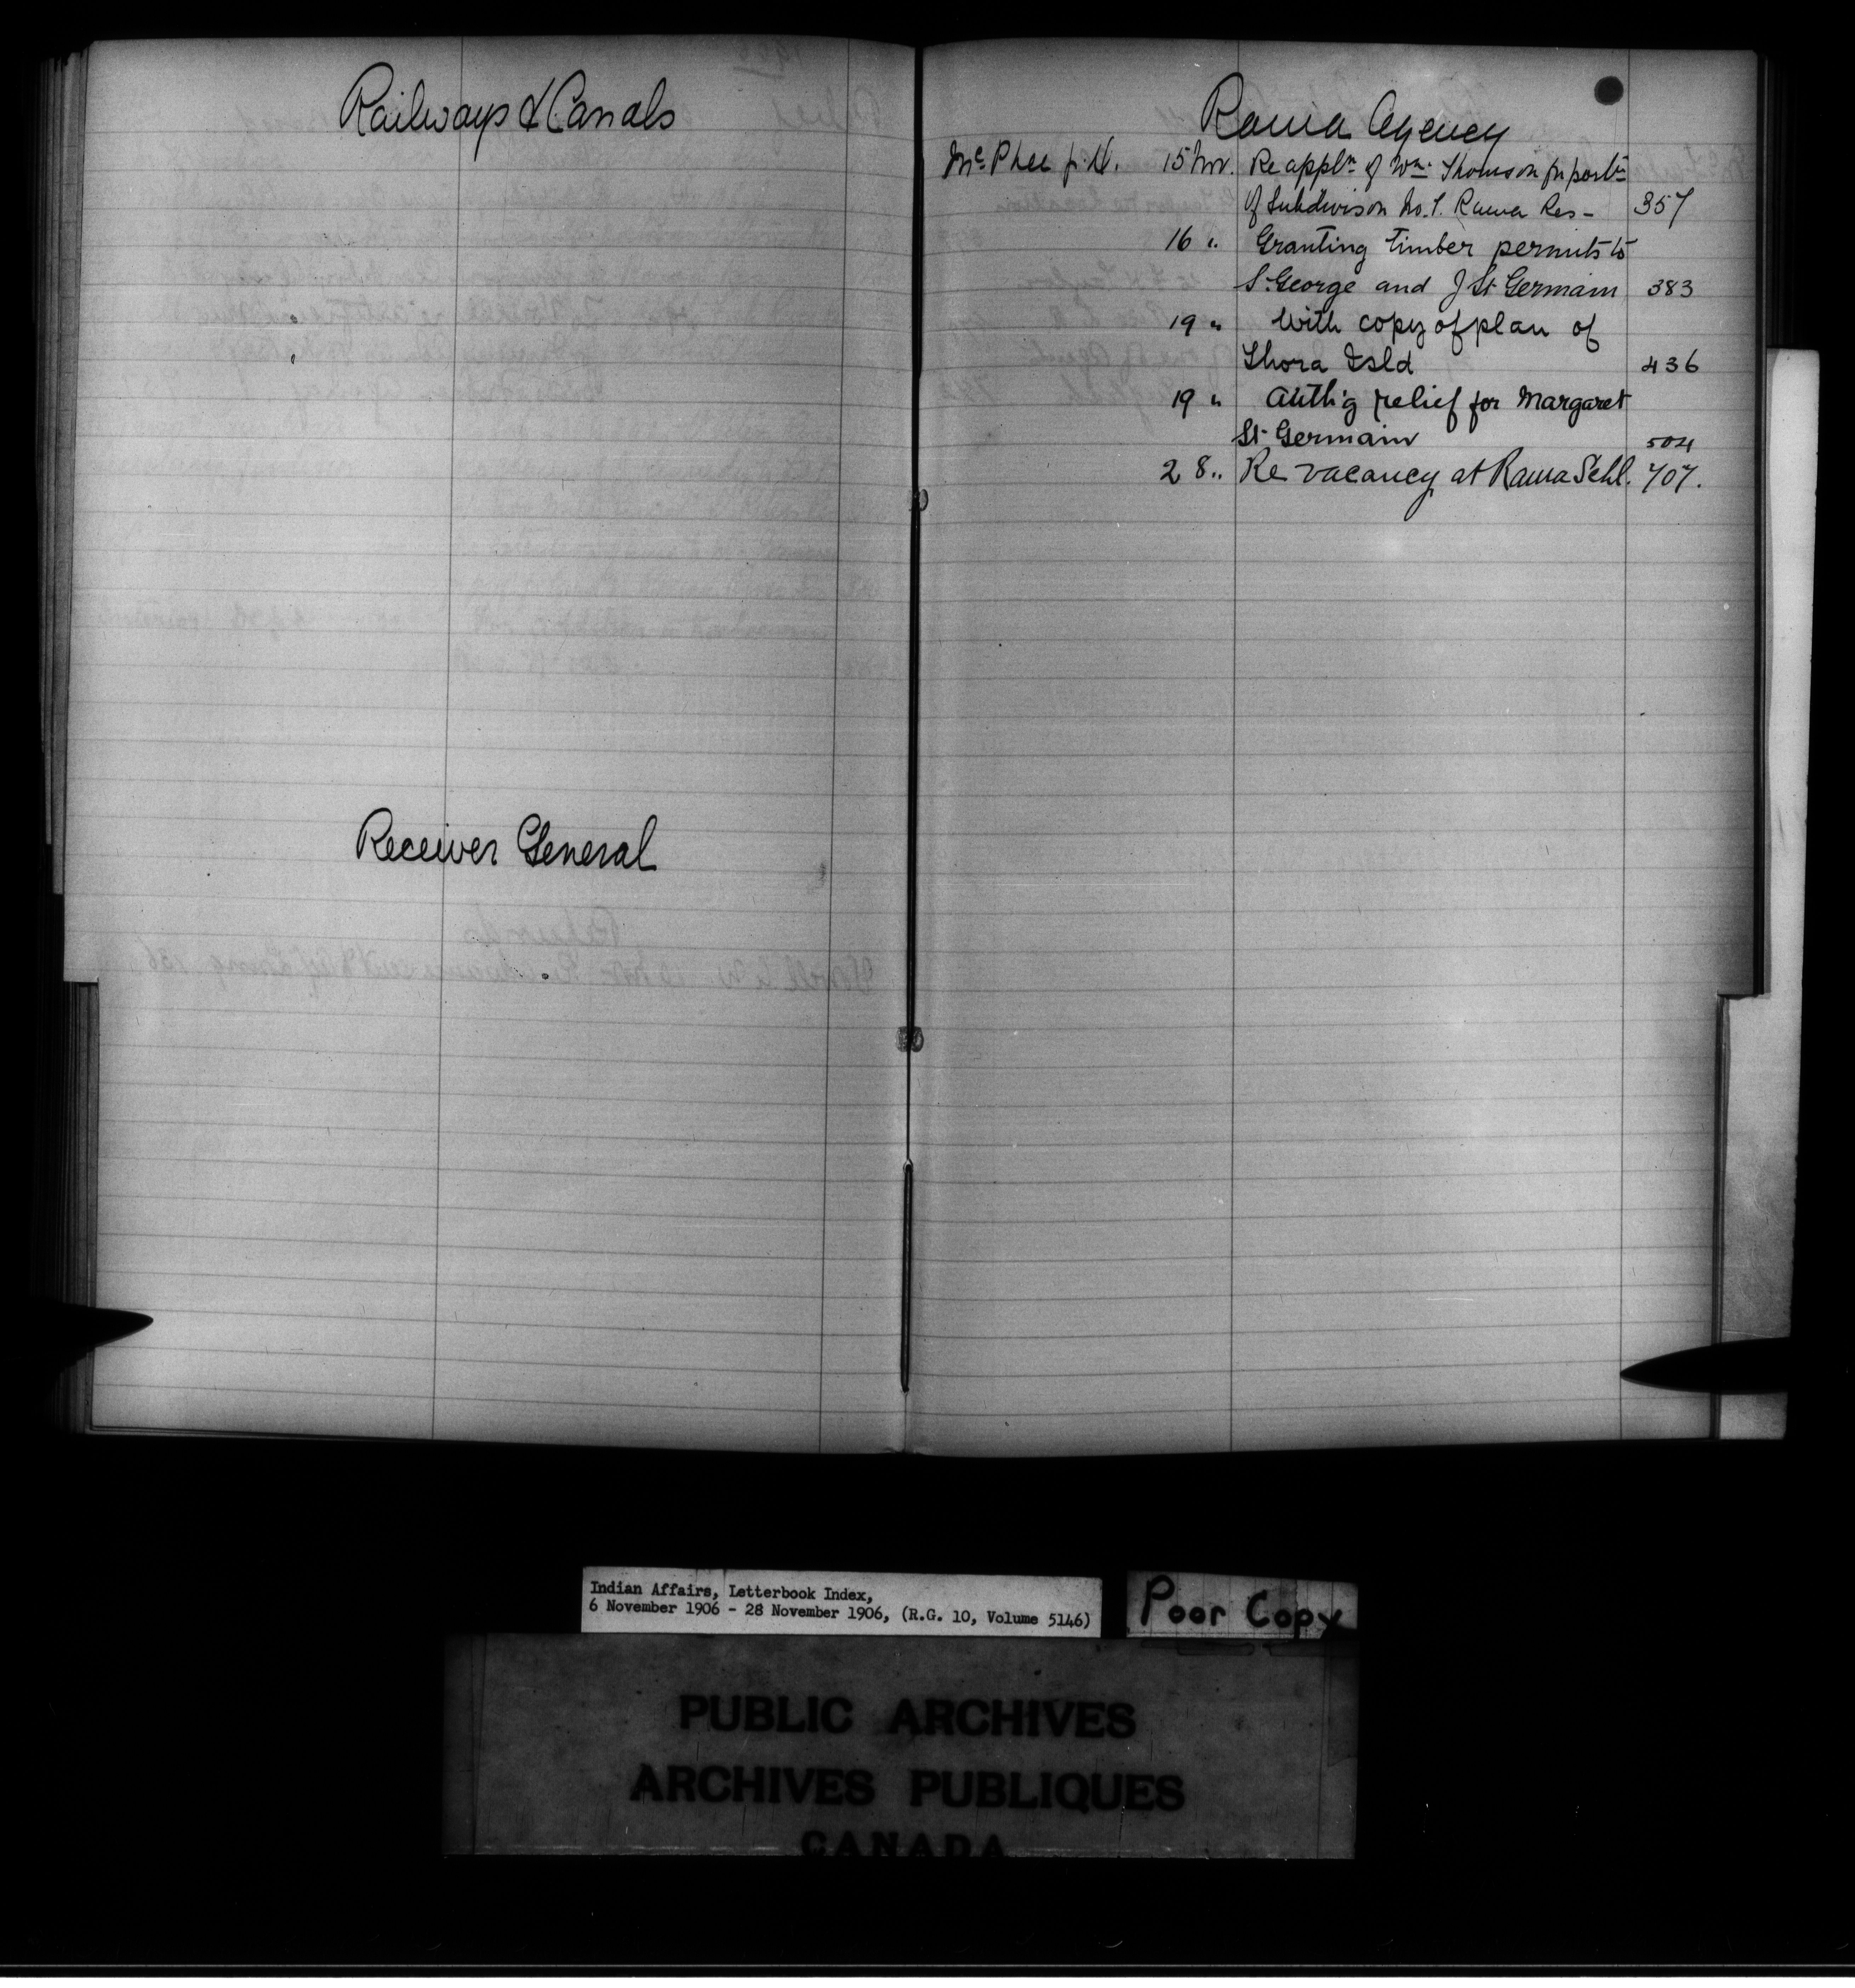 Railways & Canals
Receiver General
Rama Agency
McPhee 15 Nov. Re appln of Wm. Thomson for portn
of Subdivison No. 1. Rama Res - 357
16 " Granting timber permits to
S. George and J St. Germain 383
19 " With copy of plan of
Thora Isld 436
19 " Auth'g relief for Margaret
St. Germain 504
28 " Re vacancy at Rama Schl. 707.
Indian Affairs, Letterbook Index,
6 November 1906 - 28 November 1906, (R.G. 10, Volume 5146)
Poor Copy
PUBLIC ARCHIVES
ARCHIVES PUBLIQUES
CANADA